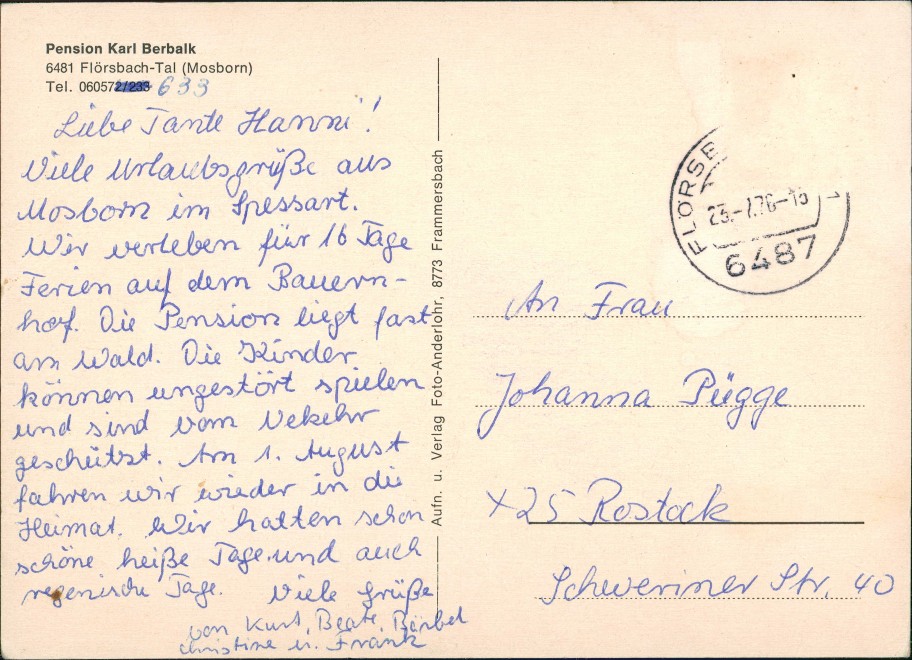 Pension Karl Berbalk
6481 Flörsbach-Tal (Mosborn)
Tel. 060572/233 633
Liebe Tante Hanni!
Viele Urlaubsgrüße aus
Mosborn im Spessart.
Wir verleben für 16 Tage
Ferien auf dem Bauern-
hof. Die Pension liegt fast
am Wald. Die Kinder
können ungestört spielen
und sind vom Vekehr
geschützt. Am 1. August
fahren wir wieder in die
Heimat. Wir hatten schon
schöne heiße Tage und auch
regenische Tage. Viele Grüße
von Kurt, Beate, Bärbel
Christine u. Frank
Aufn. u. Verlag Foto-Anderlohr, 8773 Frammersbach
FLÖRSB
23.-7.76-15
6487
An Frau
Johanna Pügge
X25 Rostock
Schweriner Str. 40